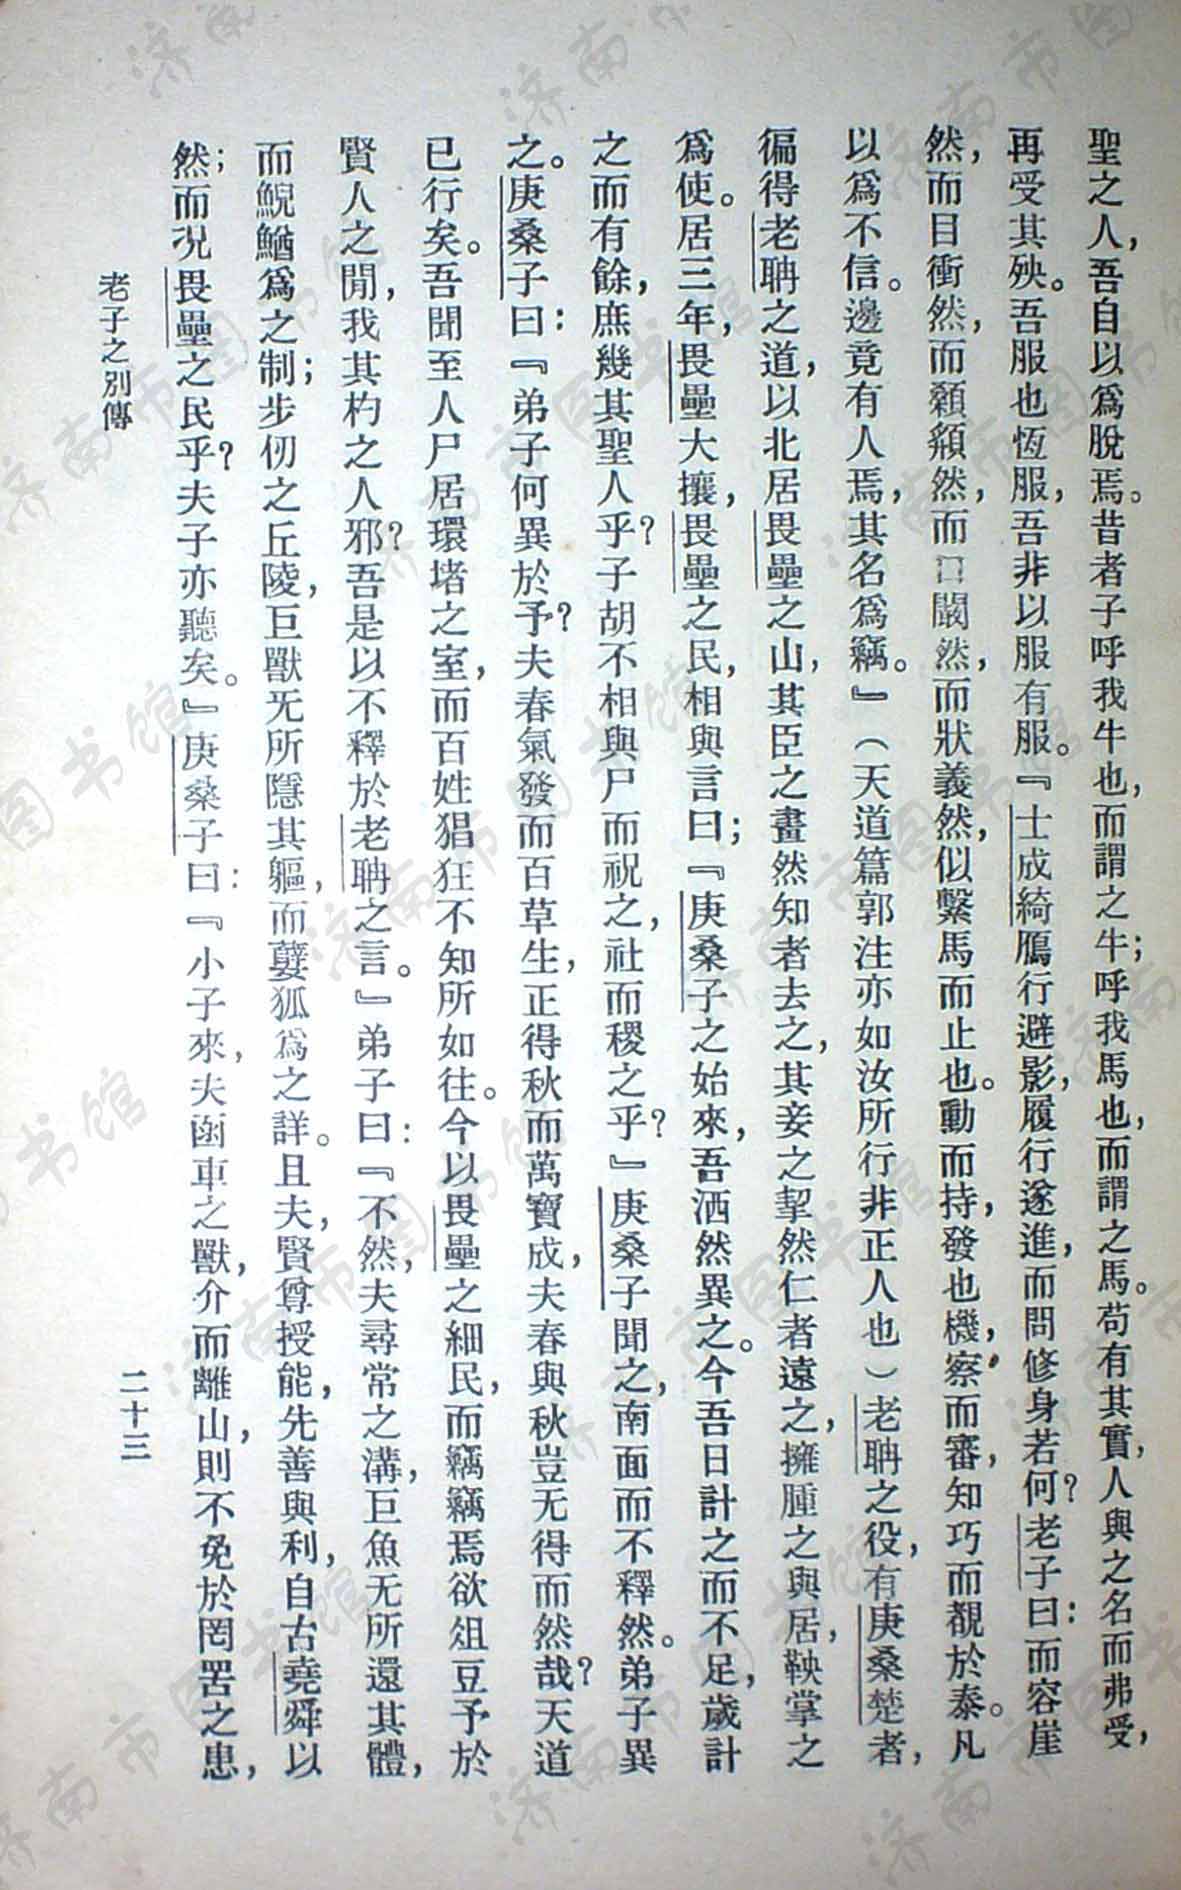 聖之人，吾自以爲脫焉。昔者子呼我牛也，而謂之牛；呼我馬也，而謂之馬。苟有其實，人與之名而弗受，
再受其殃。吾服也恆服，吾非以服有服。『士成綺鴈行避影，履行遂進，而問修身若何？老子曰：而容崖
然，而目衝然，而顙頯然，而口闞然，而狀義然，似繫馬而止也。動而持，發也機，察而審，知巧而覩於泰。凡
以爲不信。邊竟有人焉，其名爲竊。』（天道篇郭注亦如汝所行非正人也）老聃之役，有庚桑楚者，
徧得老聃之道，以北居畏壘之山，其臣之畫然知者去之，其妾之挈然仁者遠之，擁腫之與居，鞅掌之
爲使。居三年，畏壘大攘，畏壘之民，相與言曰；『庚桑子之始來，吾洒然異之。今吾日計之而不足，歲計
之而有餘，庶幾其聖人乎？子胡不相與尸而祝之，社而稷之乎？』庚桑子聞之，南面而不釋然。弟子異
之。庚桑子曰：『弟子何異於予？夫春氣發而百草生，正得秋而萬寶成，夫春與秋豈无得而然哉？天道
已行矣。吾聞至人尸居環堵之室，而百姓猖狂不知所如往。今以畏壘之細民，而竊竊焉欲俎豆予於
賢人之閒，我其杓之人邪？吾是以不釋於老聃之言。』弟子曰：『不然，夫尋常之溝，巨魚无所還其體，
而鯢鰌爲之制；步仞之丘陵，巨獸无所隱其軀，而㜸狐爲之詳。且夫，賢尊授能，先善與利，自古堯舜以
然；而況畏壘之民乎？夫子亦聽矣。』庚桑子曰：『小子來，夫函車之獸，介而離山，則不免於罔罟之患，
老子之別傳
二十三
济南市图书馆